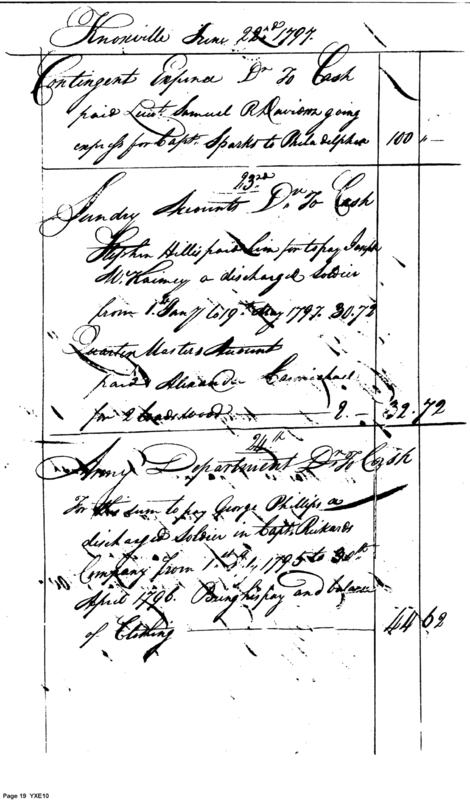 Knoxville June 22nd 1797.
Contingent Expence Dr To Cash
paid Lieut. Samuel R Davidson going
express for Capt. Sparks to Philadelphia 100 "
23rd
Sundry Accounts Dr To Cash
Stephen Hillis paid him for to pay Joseph
McKaimey a discharged Soldier
from 1st Jany to 19th May 1797. 30.72
Quarter Masters Account
paid Alexander Carmichael
for 2 loads wood 2. - 32.72
24th
Army Department Dr To Cash
For this sum to pay George Phillips a
discharged Soldier in Capt. Rickards
Company from 1st 1795 to 30th
April 1796. Being his pay and balance
of Clothing 44 62
Page 19 YXE10